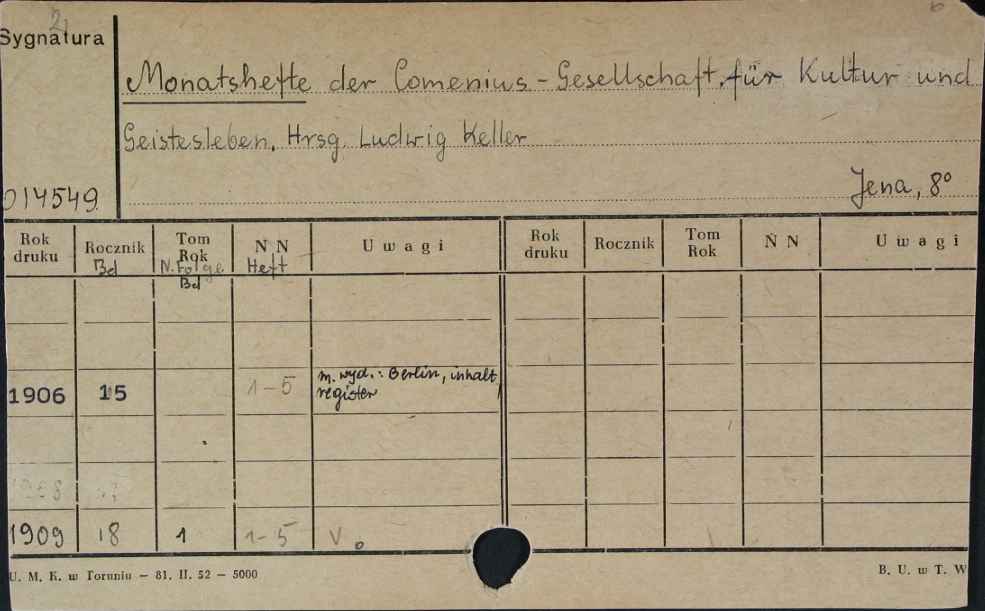 2
6
Sygnatura
Monatshefte der Comenius-Gesellschaft für Kultur und
Geistesleben. Hrsg. Ludwig Keller
014549
Jena, 8°
Rok druku Rocznik Tom Rok N N Uwagi Rok druku Rocznik Tom Rok N N Uwagi
Bd N. Folge Bd Heft
1906 15 1-5 m. wyd.: Berlin, inhalt,
register
1909 18 1 1-5 V o
U. M. K. w Toruniu – 81. II. 52 – 5000
B. U. w T. W